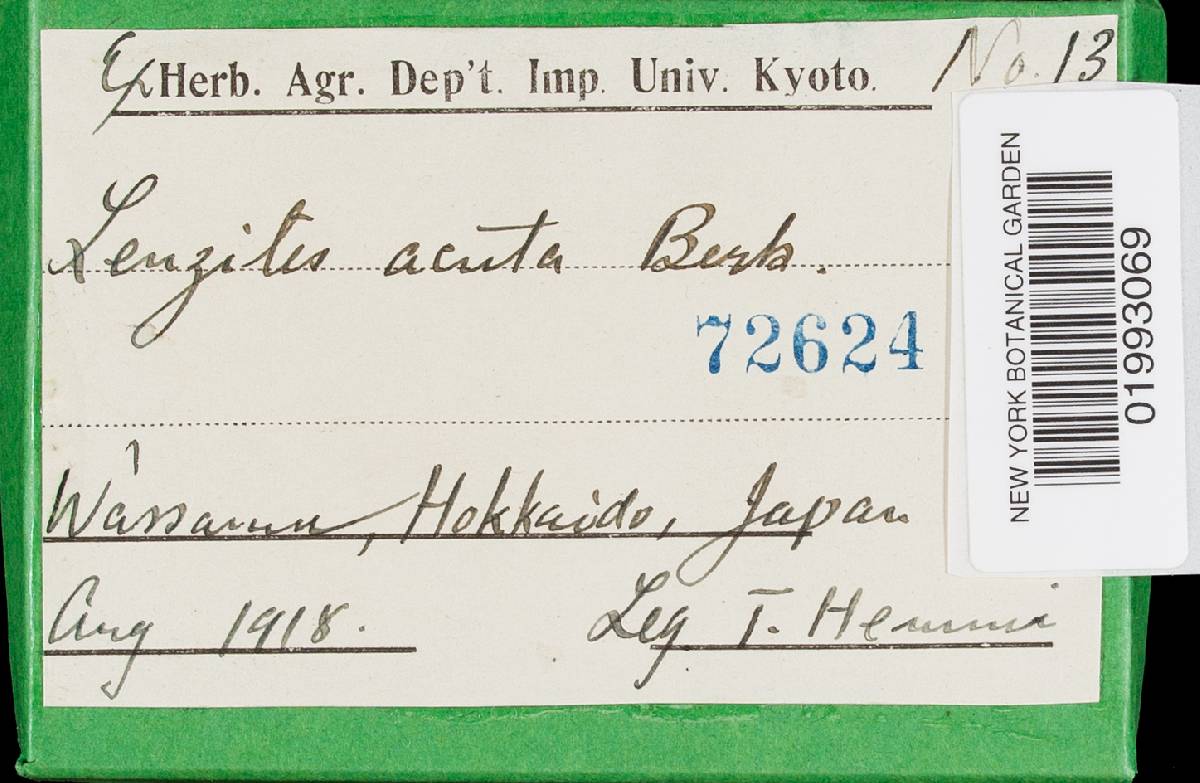 Ex Herb. Agr. Dep't. Imp. Univ. Kyoto. No. 13
Lenzites acuta Berk.
72624
Wassamu, Hokkaido, Japan
Aug 1918. Leg. T. Hemmi
NEW YORK BOTANICAL GARDEN
01993069